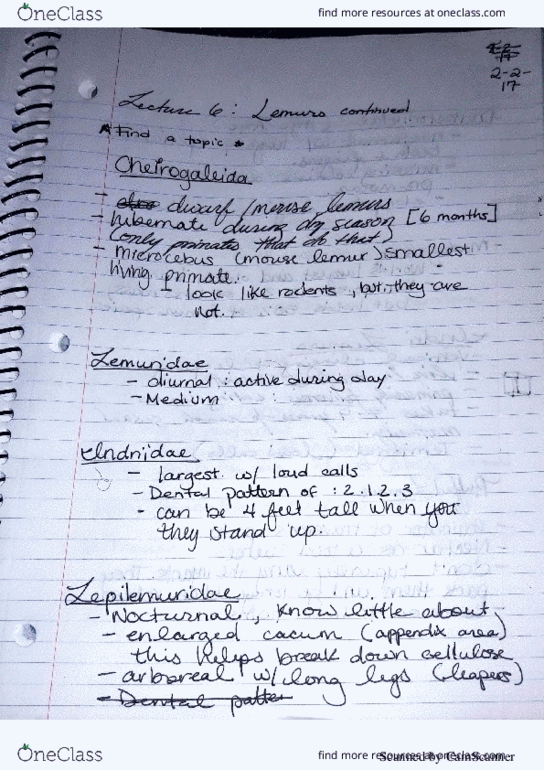 OneClass
find more resources at oneclass.com
2-2-
17
Lecture 6: Lemurs continued
*Find a topic *
Cheirogaleida
- dwarf/mouse lemurs
- hibernate during dry season [6 months]
(only primate that do that)
- microcebus (mouse lemur) smallest
living primate.
- look like rodents, but they are
not.
Lemuridae
- diurnal : active during day
- Medium
- largest w/ loud calls
- Dental pattern of : 2.1.2.3
- can be 4 feet tall when you
they stand up.
Lepilemuridae
- Nocturnal, know little about
- enlarged cacum (appendix area)
this helps break down cellulose
- arboreal w/ long legs (leapers)
- Dental patter
OneClass
find more resources at oneclass.com
Scanned by CamScanner